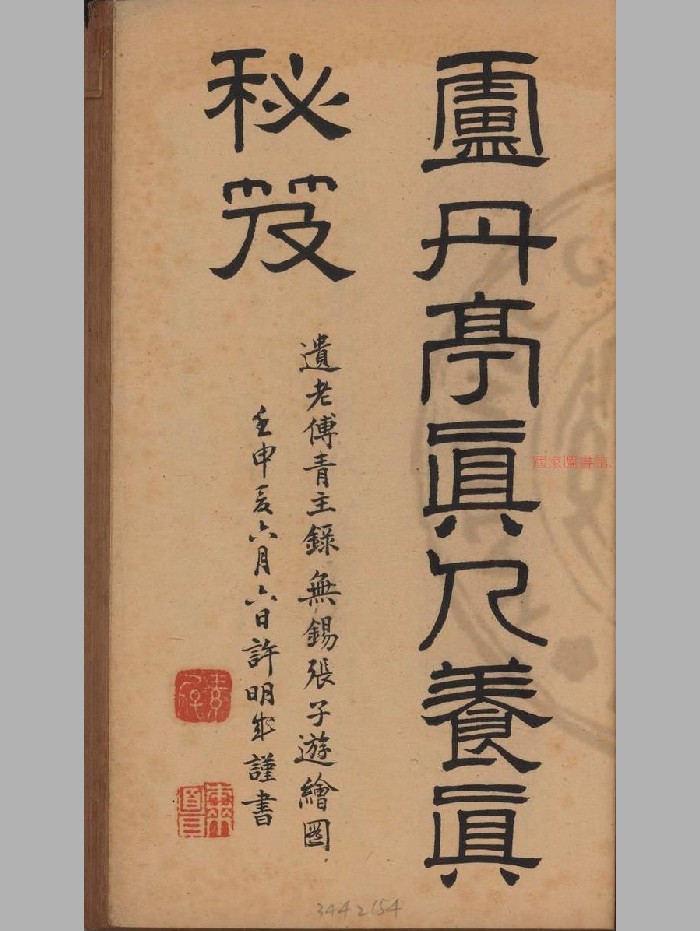 盧丹亭眞人養眞
秘笈
遺老傅青主錄無錫張子遊繪圖
壬申夏六月六日許明成謹書
國家圖書館
3442154